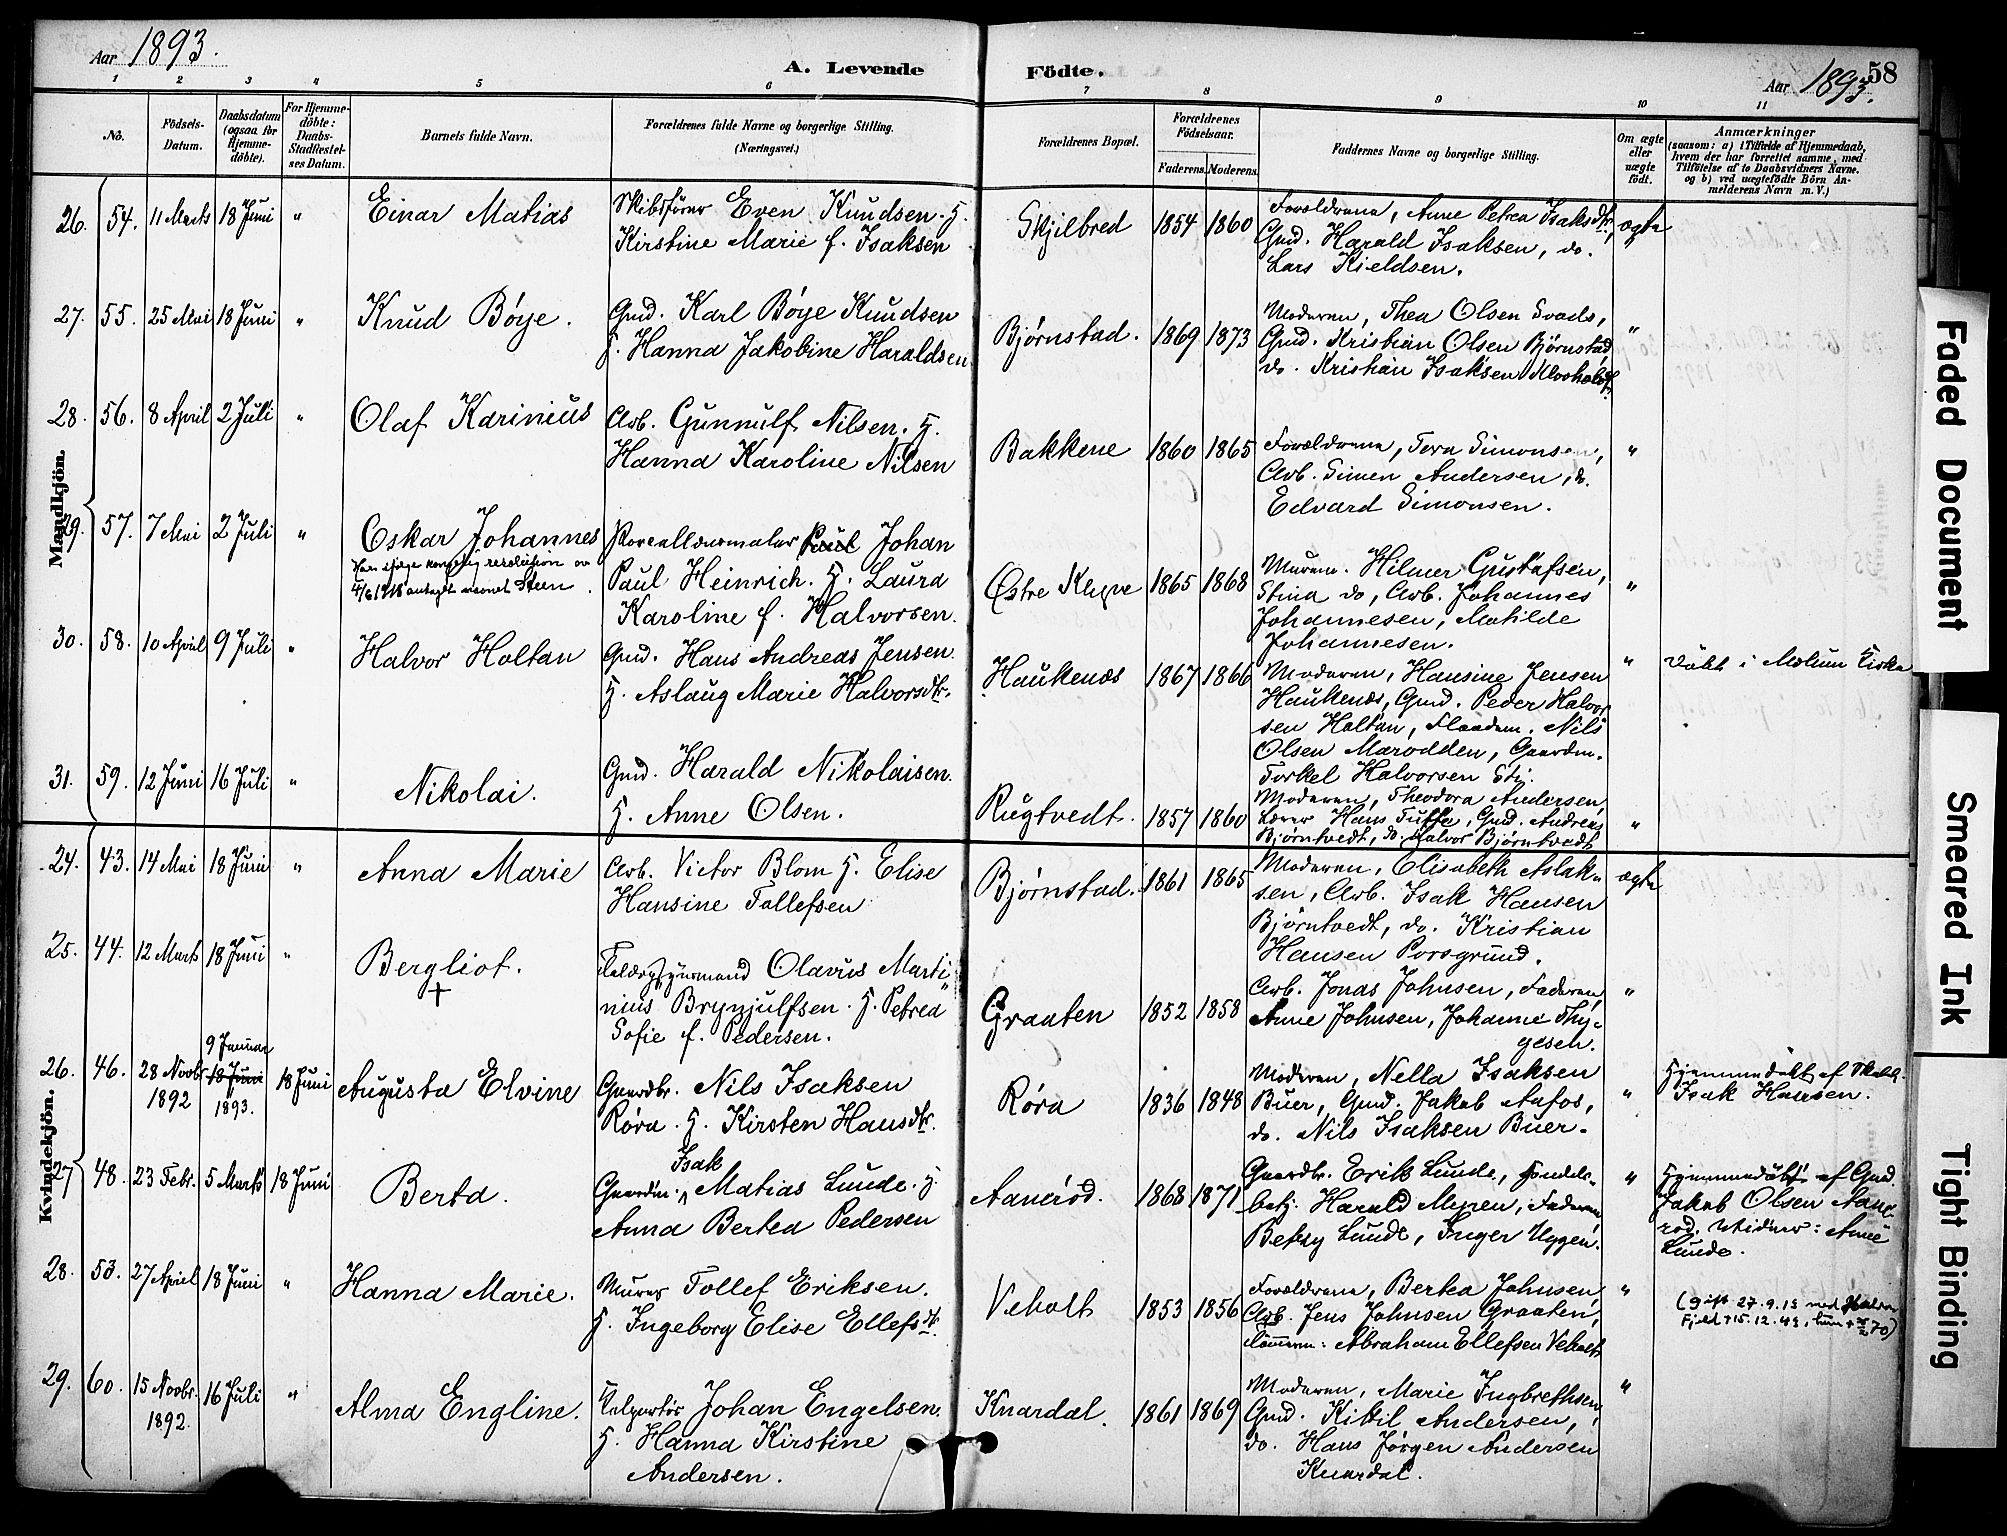 Aar 1893.
A. Levende Födte.
Aar 1893.
58
1 2 3 4 5 6 7 8 9 10 11
No.
Födsels-Datum.
Daabsdatum (ogsaa for Hjemme-döbte).
For Hjemme-döbte: Daabs-Stadfæstel-ses Datum.
Barnets fulde Navn.
Forældrenes fulde Navne og borgerlige Stilling.
(Næringsvei.)
Forældrenes Bopæl.
Forældrenes Födselsaar.
Faderens. Moderens.
Faddernes Navne og borgerlige Stilling.
Om ægte eller uægte födt.
Anmærkninger
(saasom: a) i Tilfælde af Hjemmedaab,
hvem der har forrettet samme, med
Tilföielse af to Daabsvidners Navne.
og b) ved uægtefödte Börn An-
melderens Navn m. V.)
Mandkjön.
26. 54. 11 Marts 18 Juni " Einar Matias
Skibsfører Even Knudsen. H.
Kirstine Marie f. Isaksen
Skjilbred 1854 1860
Forældrene, Anne Petrea Isaksdtr,
Gmd. Harald Isaksen, do.
Lars Kieldsen.
ægte
27. 55. 25 Mai 18 Juni " Knud Böye.
Gmd. Karl Böye Knudsen
H. Hanna Jakobine Haraldsen
Bjørnstad. 1869 1873
Moderen, Thea Olsen
Gmd. Kristian Olsen Bjørnstad
do. Kristian Isaksen
"
28. 56. 8 April 2 Juli " Olaf Karinius
Arb. Gunnulf Nilsen. H.
Hanna Karoline Nilsen
Bakkene 1860 1865
Forældrene, Tera Simonsen,
Arb. Simen Andersen, do.
Edvard Simonsen.
"
29. 57. 7 Mai 2 Juli " Oskar Johannes
Har ifølge kongelig resolution av
antagit navnet Steen.
Porcellænsmaler Paul Johan
Paul Heinrich. H. Laura
Karoline f. Halvorsen.
Østre Klyve 1865 1868
Murem. Hilmer Gustafsen,
Stina do, Arb. Johannes
Johannesen, Matilde
Johannesen.
"
30. 58. 10 April 9 Juli " Halvor Holtan
Gmd. Hans Andreas Jensen.
H. Aslaug Marie Halvorsdtr.
Haukenæs 1867 1866
Moderen, Hansine Jensen
Haukenæs, Gmd. Peder Halvor
sen Holtan, Nils
Olsen Marodden, Gaardm.
Torkel Halvorsen Sti.
" Døbt i Melum Kirke
31. 59. 12 Juni 16 Juli " Nikolai.
Gmd. Harald Nikolaisen.
H. Anne Olsen.
Rugtvedt. 1857 1860
Moderen, Theodora Andersen,
Lærer Hans Tufte, Gmd. Andreas
Bjørntvedt, do. Halvor Bjørntvedt
"
Kvindekjön.
24. 43. 14 Mai 18 Juni " Anna Marie
Arb. Victor Blom H. Elise
Hansine Tollefsen
Bjørnstad. 1861 1865
Moderen, Elisabeth Aslak-
sen, Arb. Isak Hansen
Bjørntvedt, do. Kristian
Hansen Porsgrund.
ægte
25. 44. 12 Marts 18 Juni " Bergliot.
†
Olavus Marti
nius Brynjulfsen. H. Petrea
Sofie f. Pedersen.
Graaten 1852 1858
Arb. Jonas Johnsen, Faderen,
Anne Johnsen, Johanne Thy-
gesen.
"
26. 46. 28 Novbr. 1892 9 Januar 18 Juni 1893. 18 Juni Augusta Elvine
Gaardbr. Nils Isaksen
Røra. H. Kirsten Hansdtr.
Røra 1836 1848
Moderen, Nella Isaksen
Buer, Gmd. Jakob Aafos,
do. Nils Isaksen Buer.
" Hjemmedøbt af
Isak Hansen.
27 48. 23 Febr. 5 Marts 18 Juni Berta.
Isak
Gaardm. Matias Lunde. H.
Anna Bertea Pedersen
Aanerød. 1868 1871
Gaardbr. Erik Lunde, Handels-
betj. Harald Myren, Faderen,
Betzy Lunde, Inger Uggen.
" Hjemmedøbt af Gmd.
Jakob Olsen Aane-
rød. Vidner: Anne
Lunde.
28. 53. 27 April 18 Juni " Hanna Marie.
Murer Tollef Eriksen.
H. Ingeborg Elise Ellefsdtr.
Veholt 1853 1856
Forældrene, Bertea Johnsen,
Arb. Jens Johnsen Graaten,
Tömmerm: Abraham Ellefsen Veholt
"
(Gift 27.9.15 med Halvor
Fjeld †15.12.48, hun † 70)
29. 60. 15 Novbr. 1892. 16 Juli " Alma Engline.
Kolportør Johan Engelsen.
H. Hanna Kirstine
Andersen.
Knardal. 1861 1869
Moderen, Marie Ingbrethsen,
Gmd. Kittil Andersen,
do. Hans Jørgen Andersen
Knardal.
"
Faded Document
Smeared Ink
Tight Binding